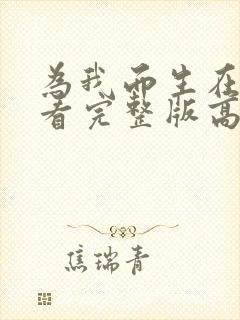 为我而生在
看完整版高
焦瑞青